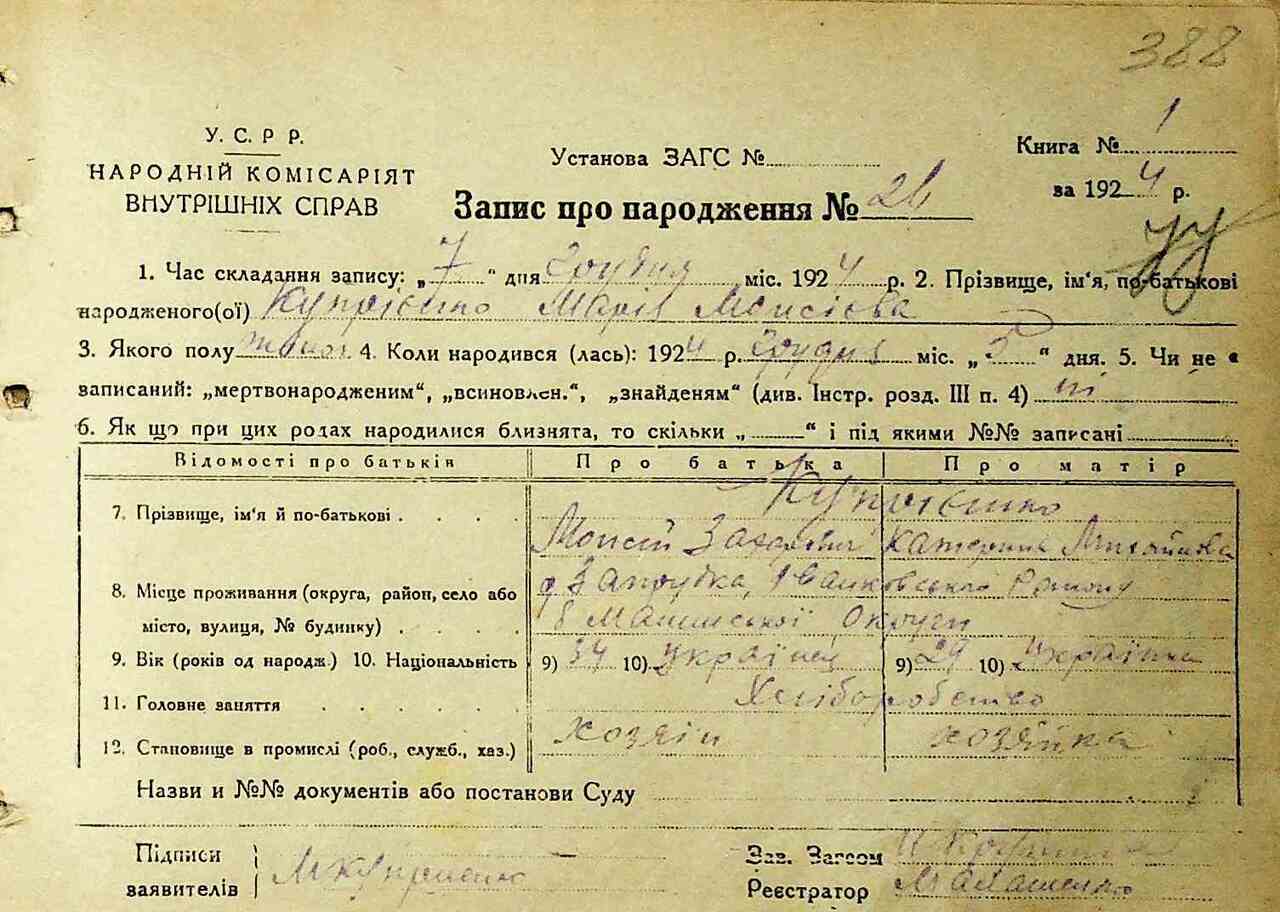 388
У. С. Р Р.
НАРОДНІЙ КОМІСАРІЯТ
ВНУТРІШНІХ СПРАВ
Установа ЗАГС №
Книга № 1
за 1924 р.
Запис про народження № 26
1. Час складання запису: „7“ дня Грудня міс. 1924 р. 2. Прізвище, ім'я, по-батькові
народженого(ої) Купрієнко Марія Мойсієва
3. Якого полу жіноч 4. Коли народився (лась): 1924 р. Грудня міс. „5“ дня. 5. Чи не
записаний: „мертвонародженим“, „всиновлен.“, „знайденям“ (див. Інстр. розд. III п. 4) ні
6. Як що при цих родах народилися близнята, то скільки „ “ і під якими №№ записані
Відомості про батьків Про батька Про матір
7. Прізвище, ім'я й по-батькові Купрієнко
Мойсій Захарович Катерина
8. Місце проживання (округа, район, село або
місто, вулиця, № будинку)
с Запрудка, Іванковського Району
Округи
9. Вік (років од народж.) 10. Національність 9) 34 10) Українец 9) 29 10) Українка
11. Головне заняття Хліборобство
12. Становище в промислі (роб., служб., хаз.) хозяін хозяйка
Назви и №№ документів або постанови Суду
Підписи
заявителів
М Купрієнко
Зав. Загсом
Реєстратор